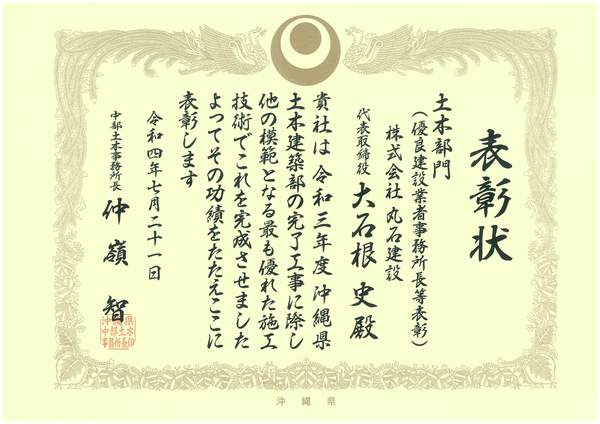 表彰状
土木部門
(優良建設業者事務所長等表彰)
株式会社 丸石建設
代表取締役 大石根 史 殿
貴社は令和三年度沖縄県
土木建築部の完了工事に際し
他の模範となる最も優れた施工
技術でこれを完成させました
よってその功績をたたえここに
表彰します
令和四年七月二十一日
中部土木事務所長 仲嶺 智
沖縄県
中部土木
事務所長印
沖縄県